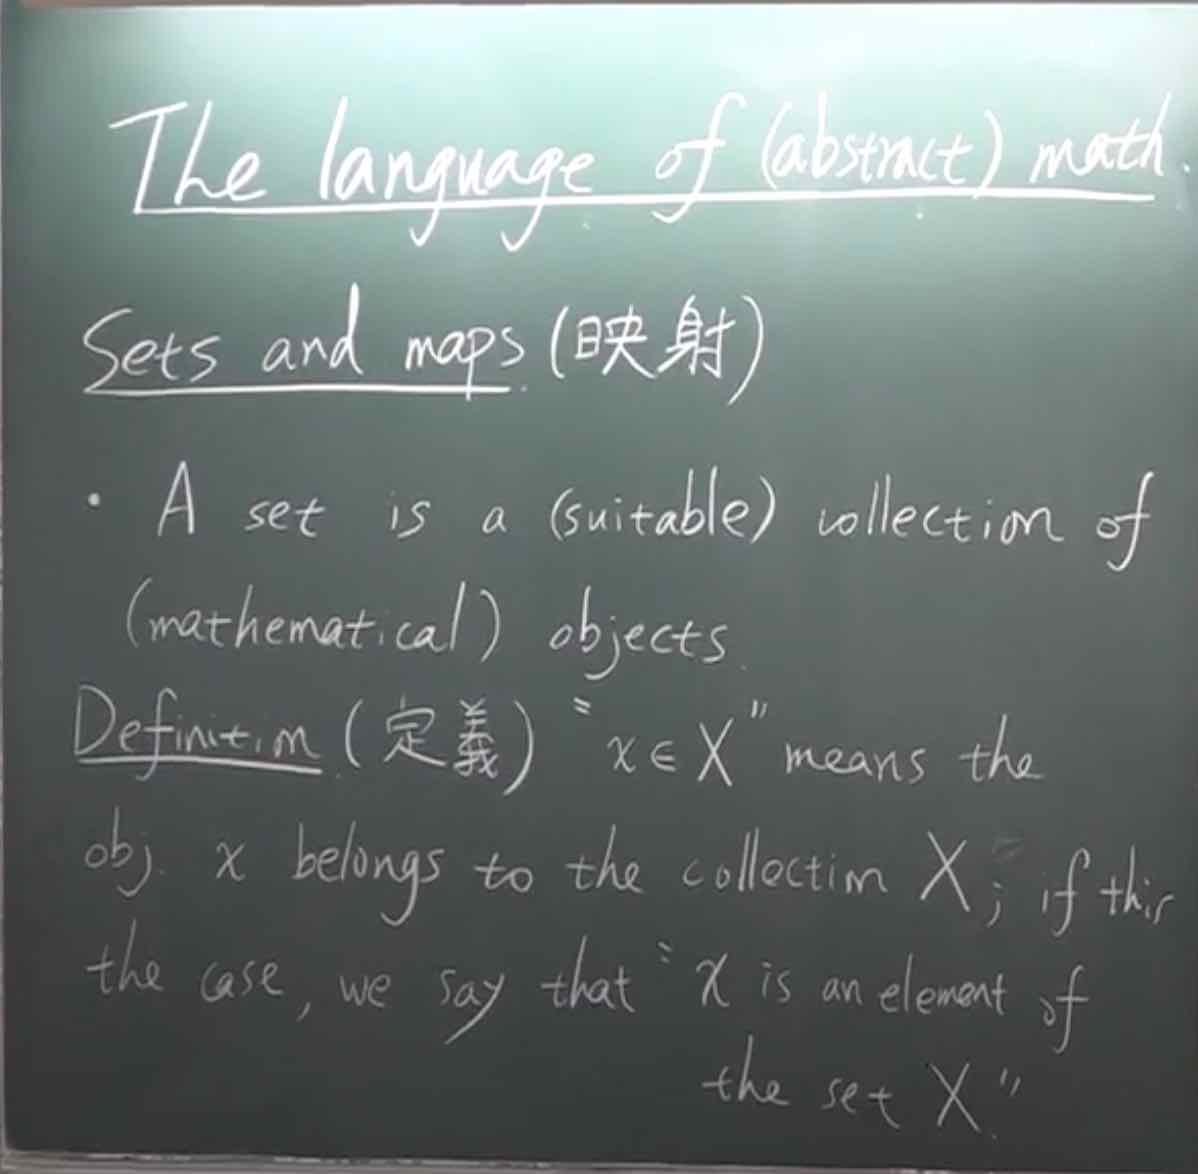 The language of (abstract) math.
Sets and maps. (映射)
· A set is a (suitable) collection of
(mathematical) objects.
Definition (定義) "x ∈ X" means the
obj. x belongs to the collection X; if this
the case, we say that "x is an element of
the set X."